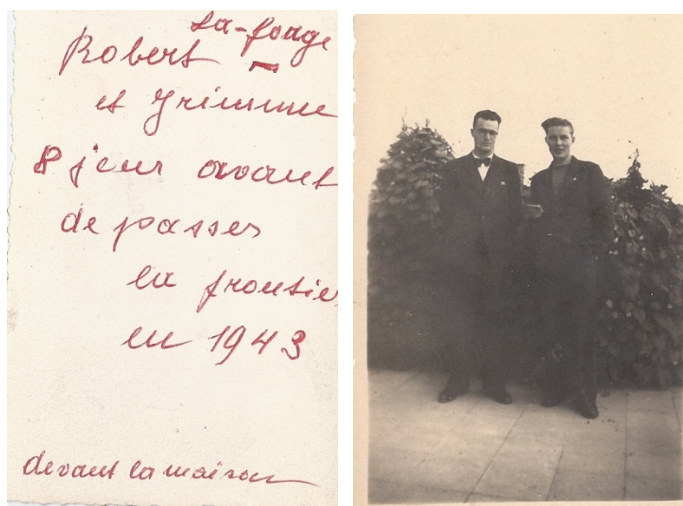 La-fouge
Robert
et Grimme
8 jour avant
de passer
la frontie
en 1943
devant la maison